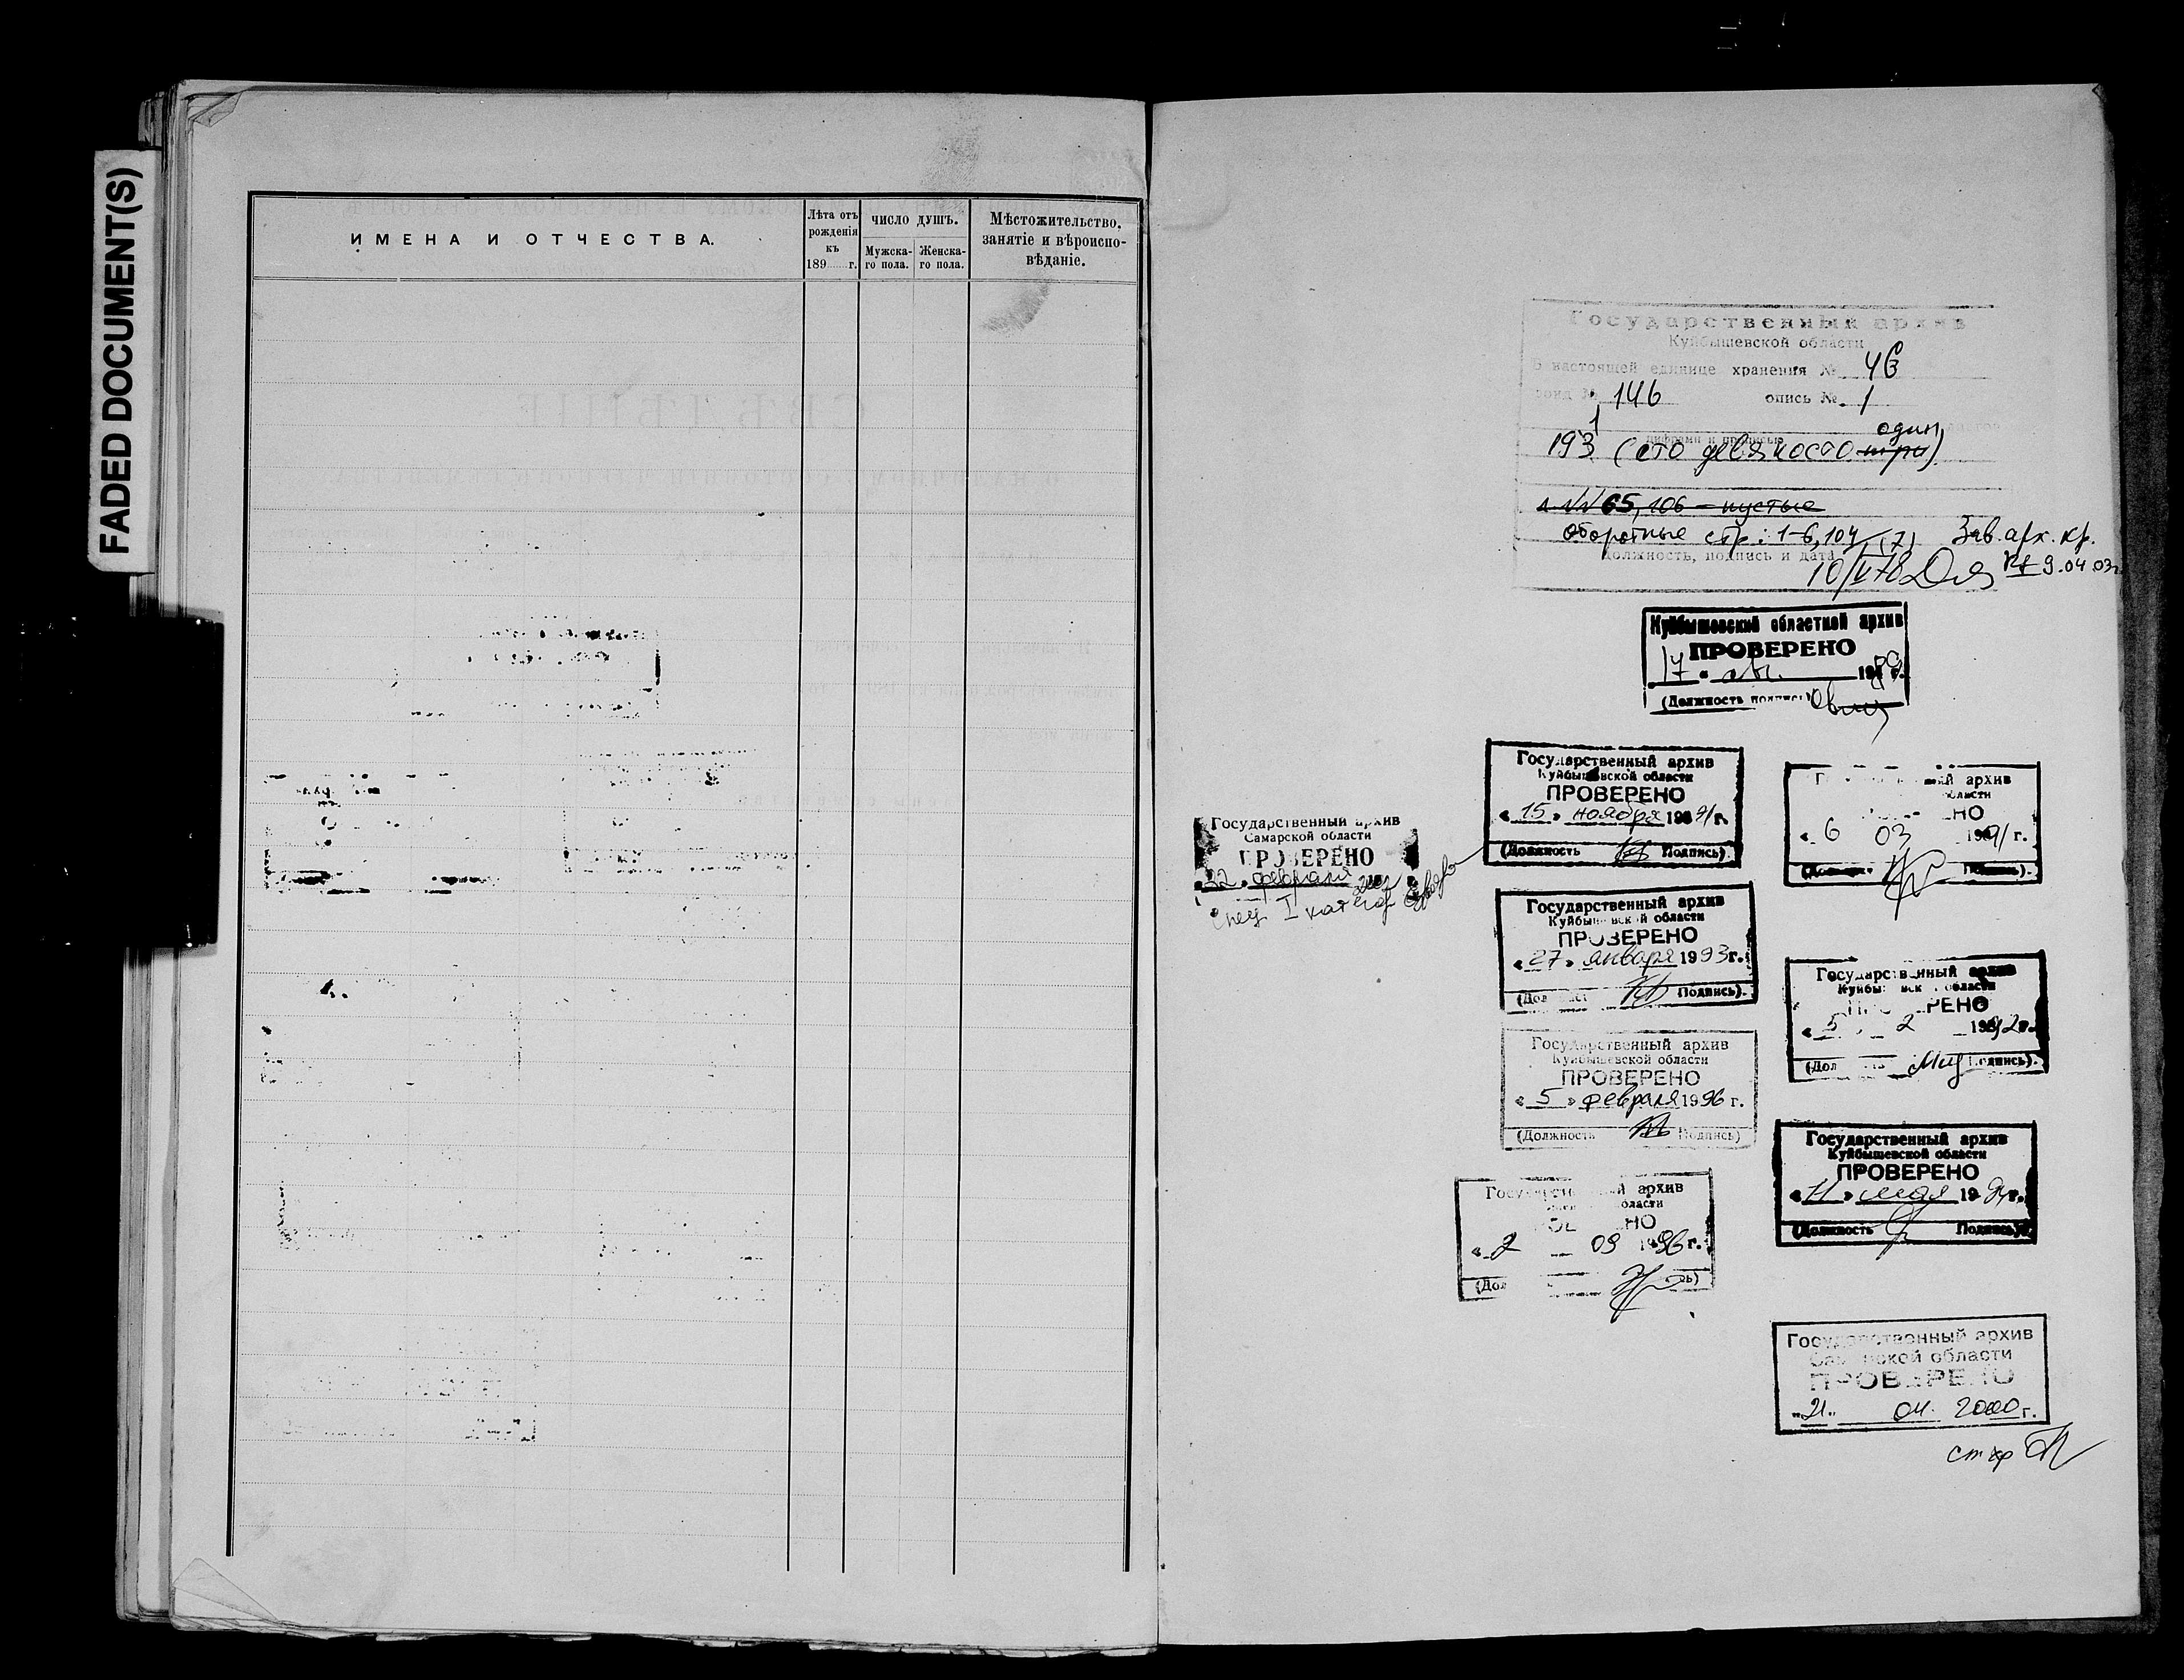 FADED DOCUMENT(S)
ИМЕНА И ОТЧЕСТВА.
Лѣта отъ
рожденія
къ
189 г.
ЧИСЛО ДУШЪ.
Мужска-
го пола.
Женска-
го пола.
Мѣстожительство,
занятіе и вѣроиспо-
вѣданіе.
Государственный архив
Куйбышевской области
В настоящей единице хранения №
фонд № 146 опись № 1
один
193 (сто девяносто три)
цифрами и прописью
65, 106 – пустые
оборотные стр: 1-6, 104 (7) Зав. арх. хр.
Должность, подпись и дата
9.04.03г
Куйбышевский областной архив
ПРОВЕРЕНО
17
(Должность подпись)
Государственный архив
Куйбышевской области
ПРОВЕРЕНО
« 15 » ноября 1991 г.
(Должность Подпись).
архив
области
« 6 03 1991 г.
Государственный архив
Самарской области
ПРОВЕРЕНО
февраля
I катег
Государственный архив
Куйбышевской области
ПРОВЕРЕНО
« 27 » января 1993 г.
(Должность Подпись).
Государственный архив
Куйбышевской области
ПРОВЕРЕНО
« 5 2 1992 г.
(Должность Подпись).
Государственный архив
Куйбышевской области
ПРОВЕРЕНО
« 5 » февраля 1996 г.
(Должность Подпись)
Государственный архив
Куйбышевской области
ПРОВЕРЕНО
« 11 » мая 19 г.
(Должность Подпись)
Государственный архив
области
« 2 09 1996 г.
Государственный архив
Самарской области
ПРОВЕРЕНО
„21„ 04. 2000 г.
ст хр